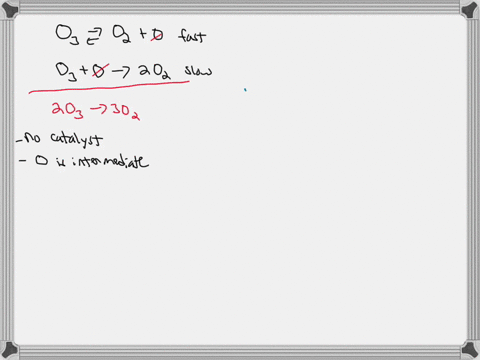 O₃ ⇌ O₂ + O fast
O₃ + O → 2O₂ slow
2O₃ → 3O₂
- no catalyst
- O is intermediate